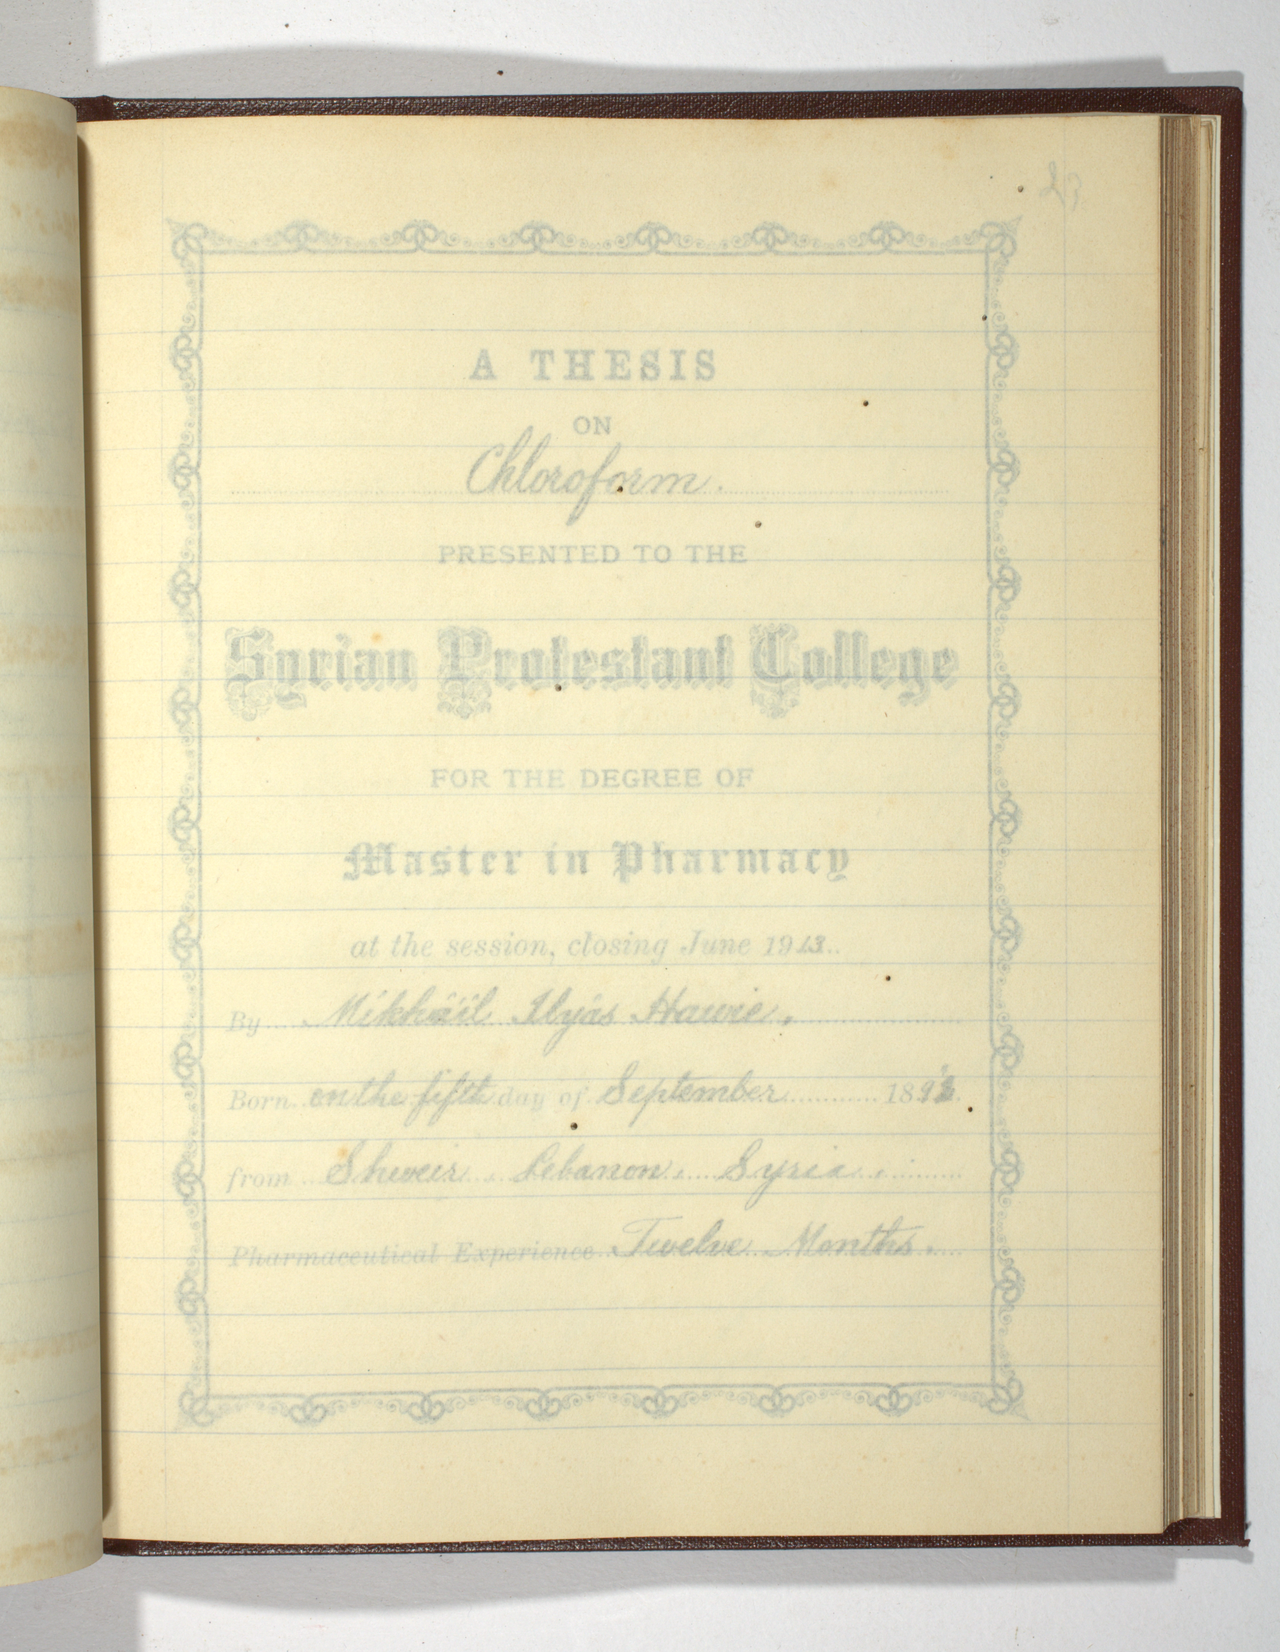 A THESIS
ON
Chloroform.
PRESENTED TO THE
Syrian Protestant College
FOR THE DEGREE OF
Master in Pharmacy
at the session, closing June 1913.
By Mikhâîl Ilyâs Hawie.
Born on the fifth day of September 189
from Shweir. Lebanon. Syria.
Pharmaceutical Experience Twelve Months.